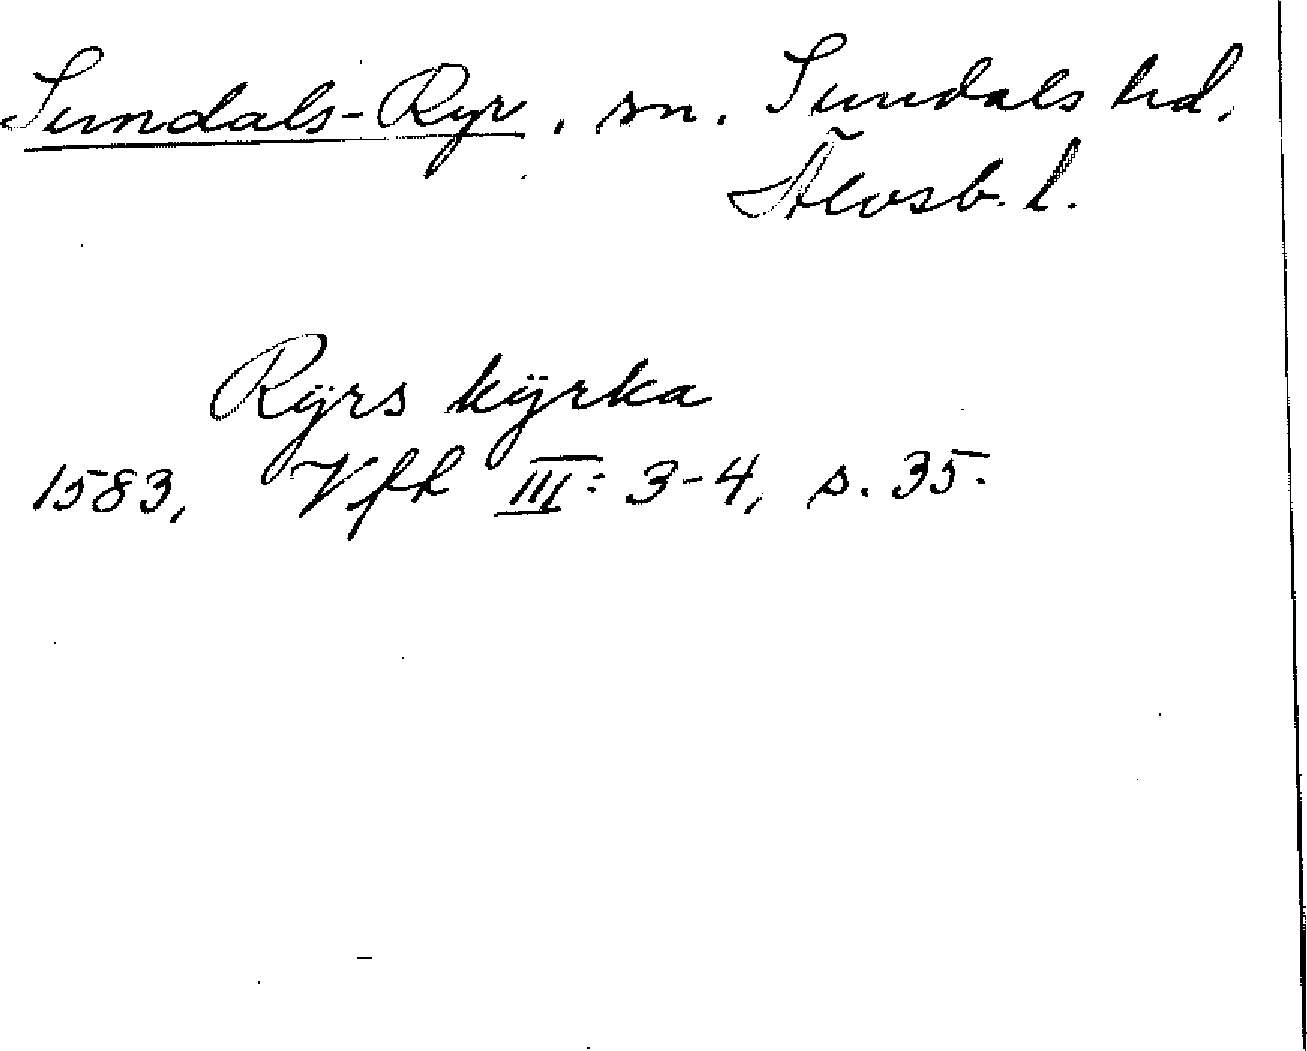 Sundals-Ryr, sn. Sundals hd.
Älvsb. l.
Rÿrs kÿrka
1583, Vfk III: 3-4, s. 35.